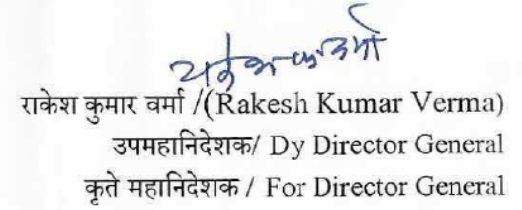 राकेश कुमार वर्मा /(Rakesh Kumar Verma)
उपमहानिदेशक/ Dy Director General
कृते महानिदेशक / For Director General